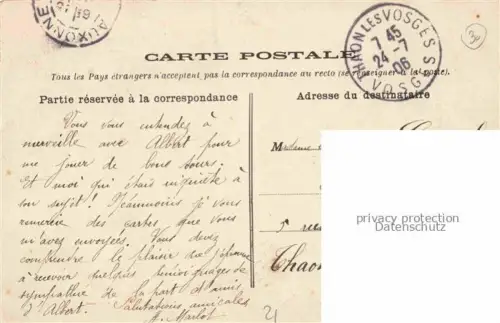 AUXONNE
THAON LES VOSGES
7 45
24 - 7
06
VOSGES
CARTE POSTALE
Tous les Pays étrangers n'acceptent pas la correspondance au recto (se renseigner à la poste).
Partie réservée à la correspondance
Adresse du destinataire
Vous vous entendez à
merveille avec Albert pour
me jouer de bons tours.
Et moi qui étais inquiète à
son sujet! Néanmoins je vous
remercie des cartes que vous
m'avez envoyées. Vous devez
comprendre le plaisir que j'éprouve
à recevoir quelques témoignages de
sympathie de la part d'amis
d'Albert. Salutations amicales
J. Marlot
Madame
5 rue
Thaon
privacy protection
Datenschutz